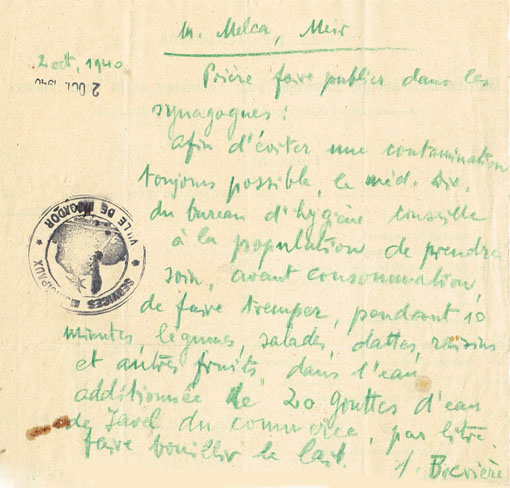 M. Melca, Meir
2 oct, 1940
2 OCT. 1940
Prière faire publier dans les
synagogues :
Afin d'éviter une contamination
toujours possible, le méd. Div.
du bureau d'hygiène conseille
à la population de prendre
soin, avant consommation,
de faire tremper, pendant 10
minutes, légumes, salades, dattes, raisins
et autres fruits, dans l'eau
additionnée de 20 gouttes d'eau
de Javel du commerce, par litre.
faire bouillir le lait.
VILLE DE MOGADOR
SERVICES MUNICIPAUX